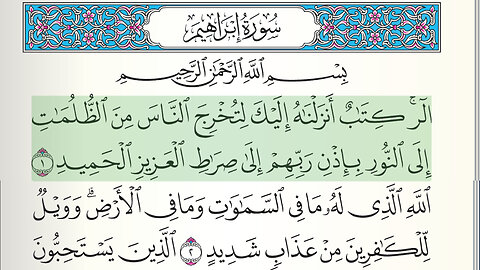 سُورَةُ إِبْرَاهِيم
بِسْمِ اللَّهِ الرَّحْمَٰنِ الرَّحِيمِ
الٓرۚ كِتَٰبٌ أَنزَلْنَٰهُ إِلَيْكَ لِتُخْرِجَ النَّاسَ مِنَ الظُّلُمَٰتِ
إِلَى النُّورِ بِإِذْنِ رَبِّهِمْ إِلَىٰ صِرَٰطِ الْعَزِيزِ الْحَمِيدِ ١
اللَّهِ الَّذِى لَهُۥ مَا فِى السَّمَٰوَٰتِ وَمَا فِى الْأَرْضِۗ وَوَيْلٌ
لِّلْكَٰفِرِينَ مِنْ عَذَابٍ شَدِيدٍ ٢ الَّذِينَ يَسْتَحِبُّونَ